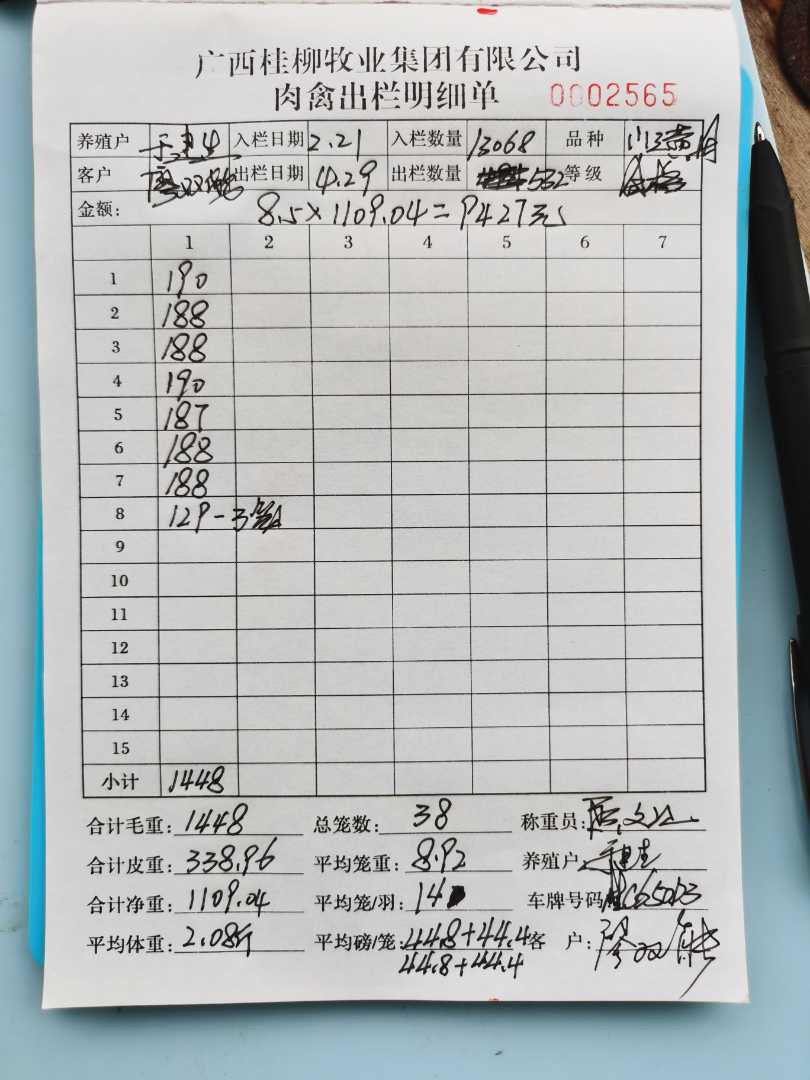 广西桂柳牧业集团有限公司
肉禽出栏明细单 0002565
养殖户 入栏日期 2.21 入栏数量 13068 品种
客户 出栏日期 4.29 出栏数量 532 等级 合格
金额: 8.5×1109.04=9427元
1 2 3 4 5 6 7
1 190
2 188
3 188
4 190
5 187
6 188
7 188
8 129-3笼
9
10
11
12
13
14
15
小计 1448
合计毛重: 1448 总笼数: 38 称重员:
合计皮重: 338.96 平均笼重: 8.92 养殖户
合计净重: 1109.04 平均笼/羽: 14 车牌号码
平均体重: 2.08斤 平均磅/笼: 44.8+44.4 客 户:
44.8+44.4